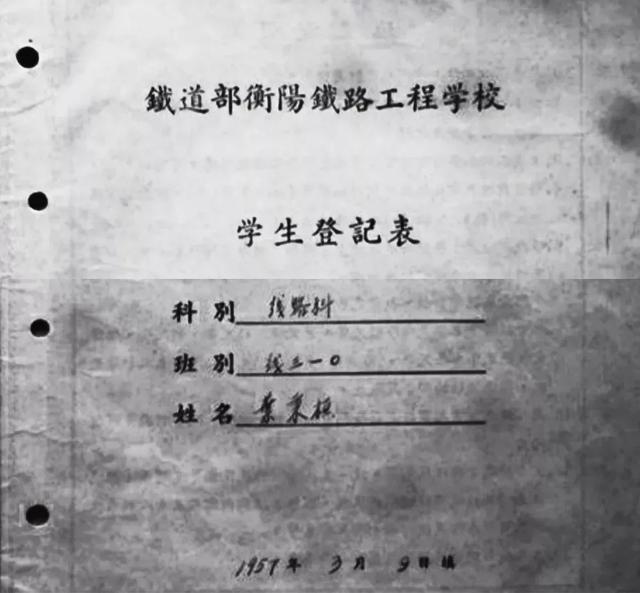 鐵道部衡陽鐵路工程学校
学生登記表
科別 线路科
班別 线三一0
姓名 葉秉
1957年 3月 9日填